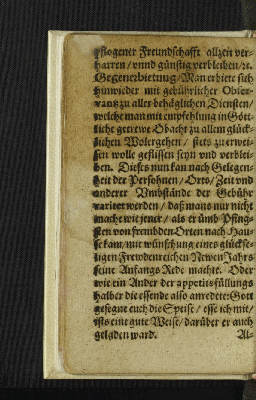 pflogener Freundschafft allzen ver-
harren / vnnd günstig verbleiben / ꝛc.
Gegenerbietung / Man erbiete sich
hinwieder mit gebührlicher Obser-
vantz zu aller behäglichen Diensten /
welche man mit empfehlung in Gött-
liche getrewe Obacht zu allem glück-
lichen Wolergehen / stets zu erwei-
sen wolle geflissen seyn vnd verblei-
ben. Dieses nun kan nach Gelegen-
heit der Persohnen / Orts / Zeit vnd
anderer Vmbstände der Gebühr
variiret werden / daß mans nur nicht
mache wie jener / als er ümb Pfing-
sten von frembden Orten nach Hau-
se kam / mit wünschung eines glückse-
ligen Frewdenreichen Newen Jahrs
seine Anfangs Rede machte. Oder
wie ein Ander der appetits füllungs
halber die essende also anredete: Gott
gesegne euch die Speise / esse ich mit /
ists eine gute Weise / darüber er auch
geladen ward. Al-